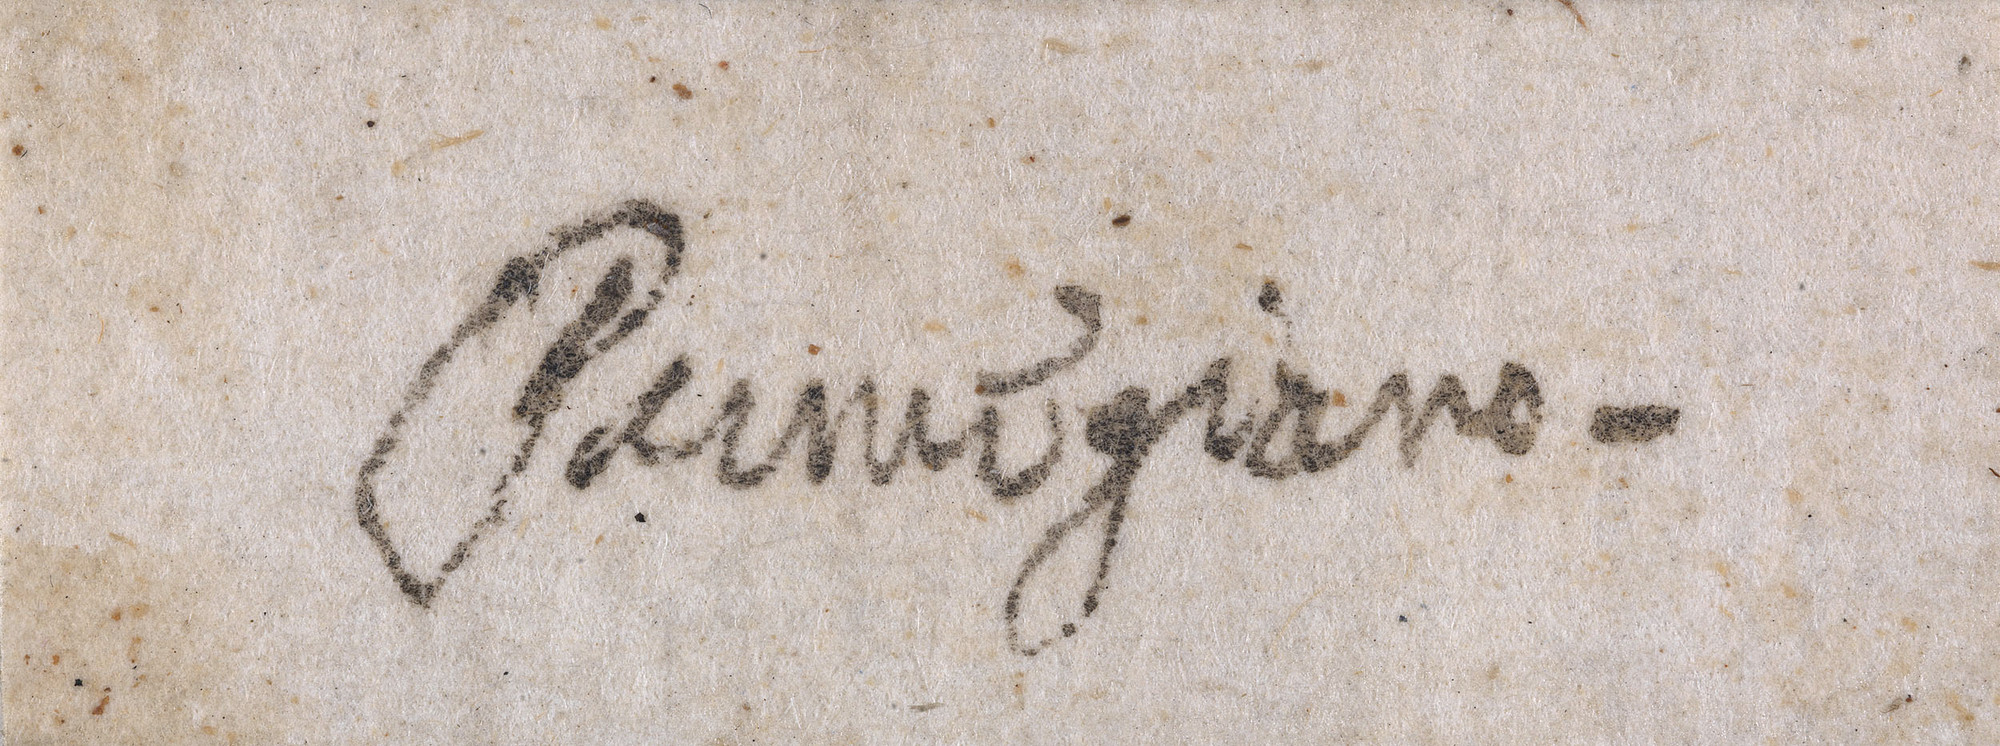 Parmigiano -